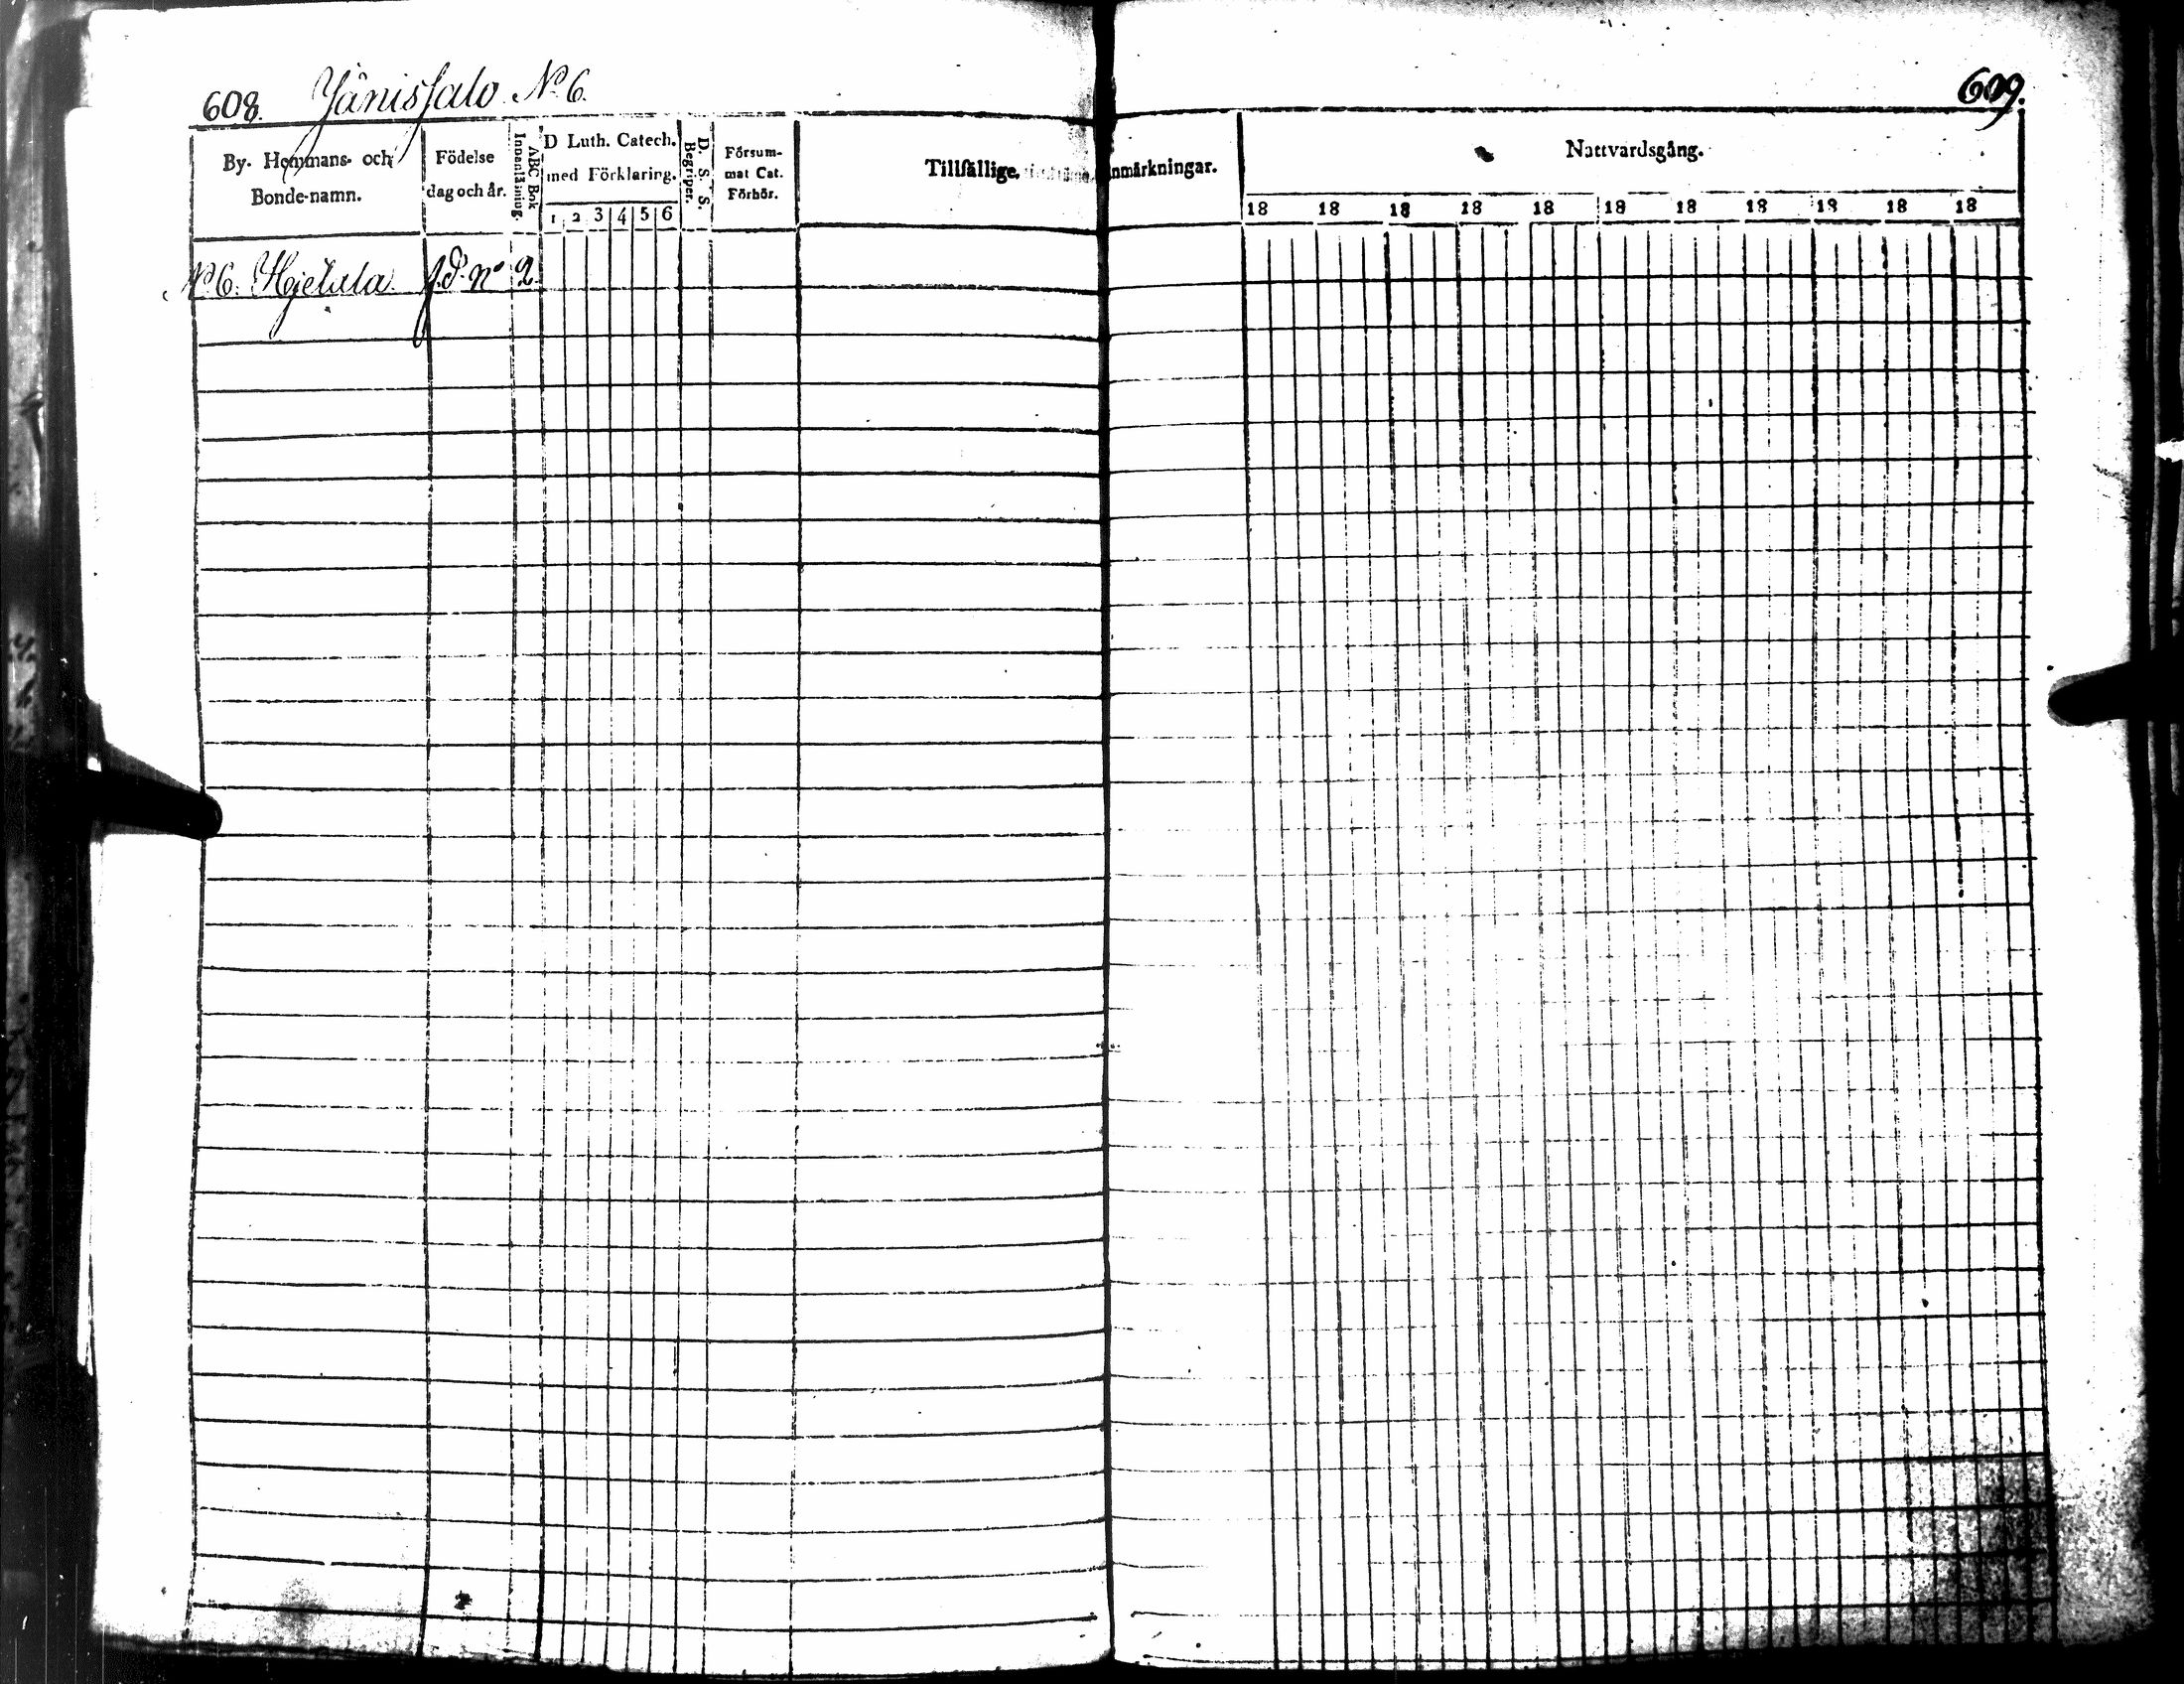 608. Jänissalo N:o 6.
609.
By- Hemmans- och Bonde-namn.
Födelse dag och år.
Innanläsning.
ABC Bok
D Luth. Catech. med Förklaring.
1 2 3 4 5 6
Begriper.
D. S. S.
Försum- mat Cat. Förhör.
Tillfällige Anmärkningar.
Nattvardsgång.
18 18 18 18 18 18 18 18 18 18 18
N:o 6. Hjetala. f.d. No 2.